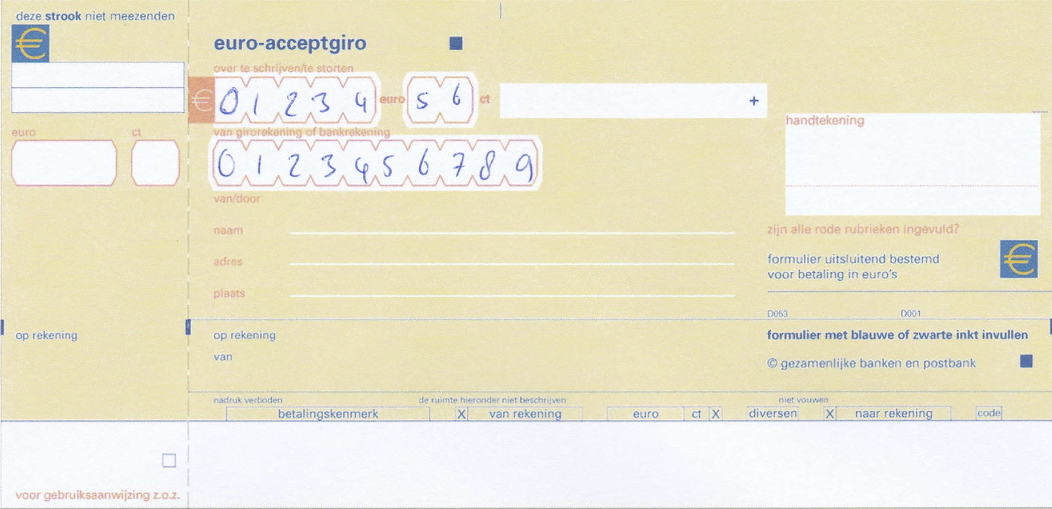 deze strook niet meezenden
€
euro ct
op rekening
voor gebruiksaanwijzing z.o.z.
euro-acceptgiro
over te schrijven/te storten
€ 01234 euro 56 ct +
van girorekening of bankrekening
0123456789
van/door
naam
adres
plaats
handtekening
zijn alle rode rubrieken ingevuld?
formulier uitsluitend bestemd
voor betaling in euro's
€
D053 D001
op rekening
van
formulier met blauwe of zwarte inkt invullen
© gezamenlijke banken en postbank
nadruk verboden de ruimte hieronder niet beschrijven niet vouwen
betalingskenmerk X van rekening euro ct X diversen X naar rekening code